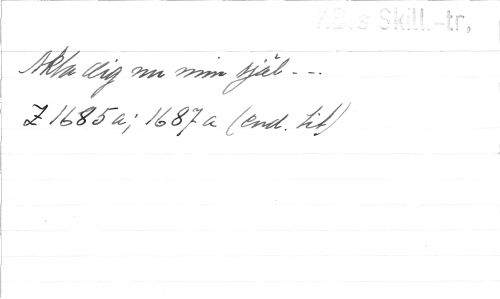 KB:s Skill.-tr.
Akta dig nu min själ - - -
Z 1685 a; 1687 a (end. tit)